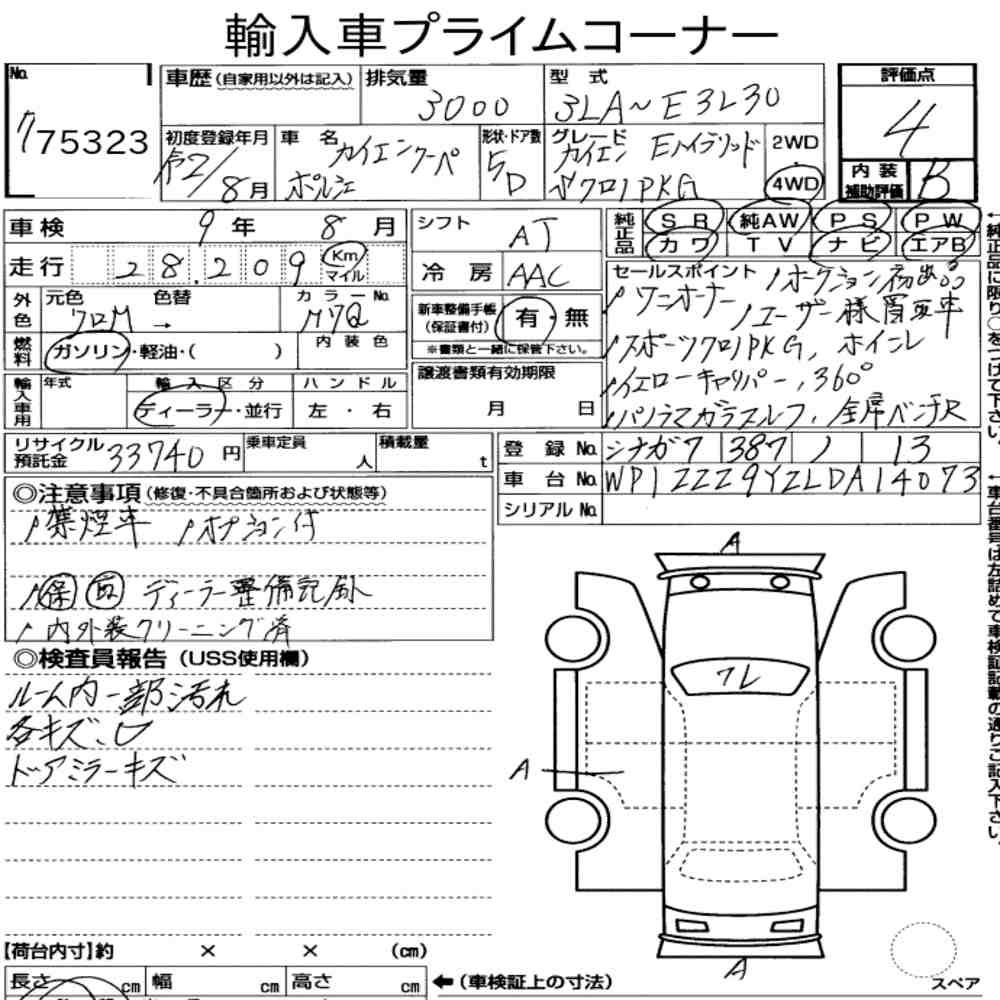 輸入車プライムコーナー
No. 775323
車歴 (自家用以外は記入)
排気量 3000
型式 3LA~E3L30
評価点 4
初度登録年月 令2/8月
車名 カイエンクーペ
ポルシェ
形状・ドア数 5D
グレード カイエン Eハイブリッド
スポクロノPKG
2WD・4WD
内装補助評価 B
車検 9年 8月
シフト AT
純正品 SR 純AW PS PW
カワ TV ナビ エアB
走行 28,209 Km マイル
冷房 AAC
外色 元色 クロM → 色替
カラーNo. M7Q
新車整備手帳 (保証書付) 有・無
※書類と一緒に保管下さい。
燃料 ガソリン・軽油・( )
内装色
輸入車用 年式
輸入区分 ディーラー・並行
ハンドル 左・右
譲渡書類有効期限
月 日
セールスポイント ノオークション初出品
ノワンオーナー ノユーザー様買取車
ノスポーツクロノPKG, ホイール
ノイエローキャリパー, 360°
ノパノラマガラスルーフ, 全席ベンチR
リサイクル預託金 33740円
乗車定員 人
積載量 t
登録No. シナガワ 387 ノ 13
車台No. WP1ZZZ9YZLDA14073
シリアルNo.
◎注意事項 (修復・不具合箇所および状態等)
ノ禁煙車 ノオプション付
ノ保 取 ディーラー整備記録
ノ内外装クリーニング済
◎検査員報告 (USS使用欄)
ルーム内一部汚れ
各キズ、凹
ドアミラーキズ
A
フレ
A
A
【荷台内寸】約 × × (cm)
長さ cm 幅 cm 高さ cm
←(車検証上の寸法)
スペア
←純正品に限り○をつけて下さい。
←車台番号は左詰めで車検証記載の通りご記入下さい。